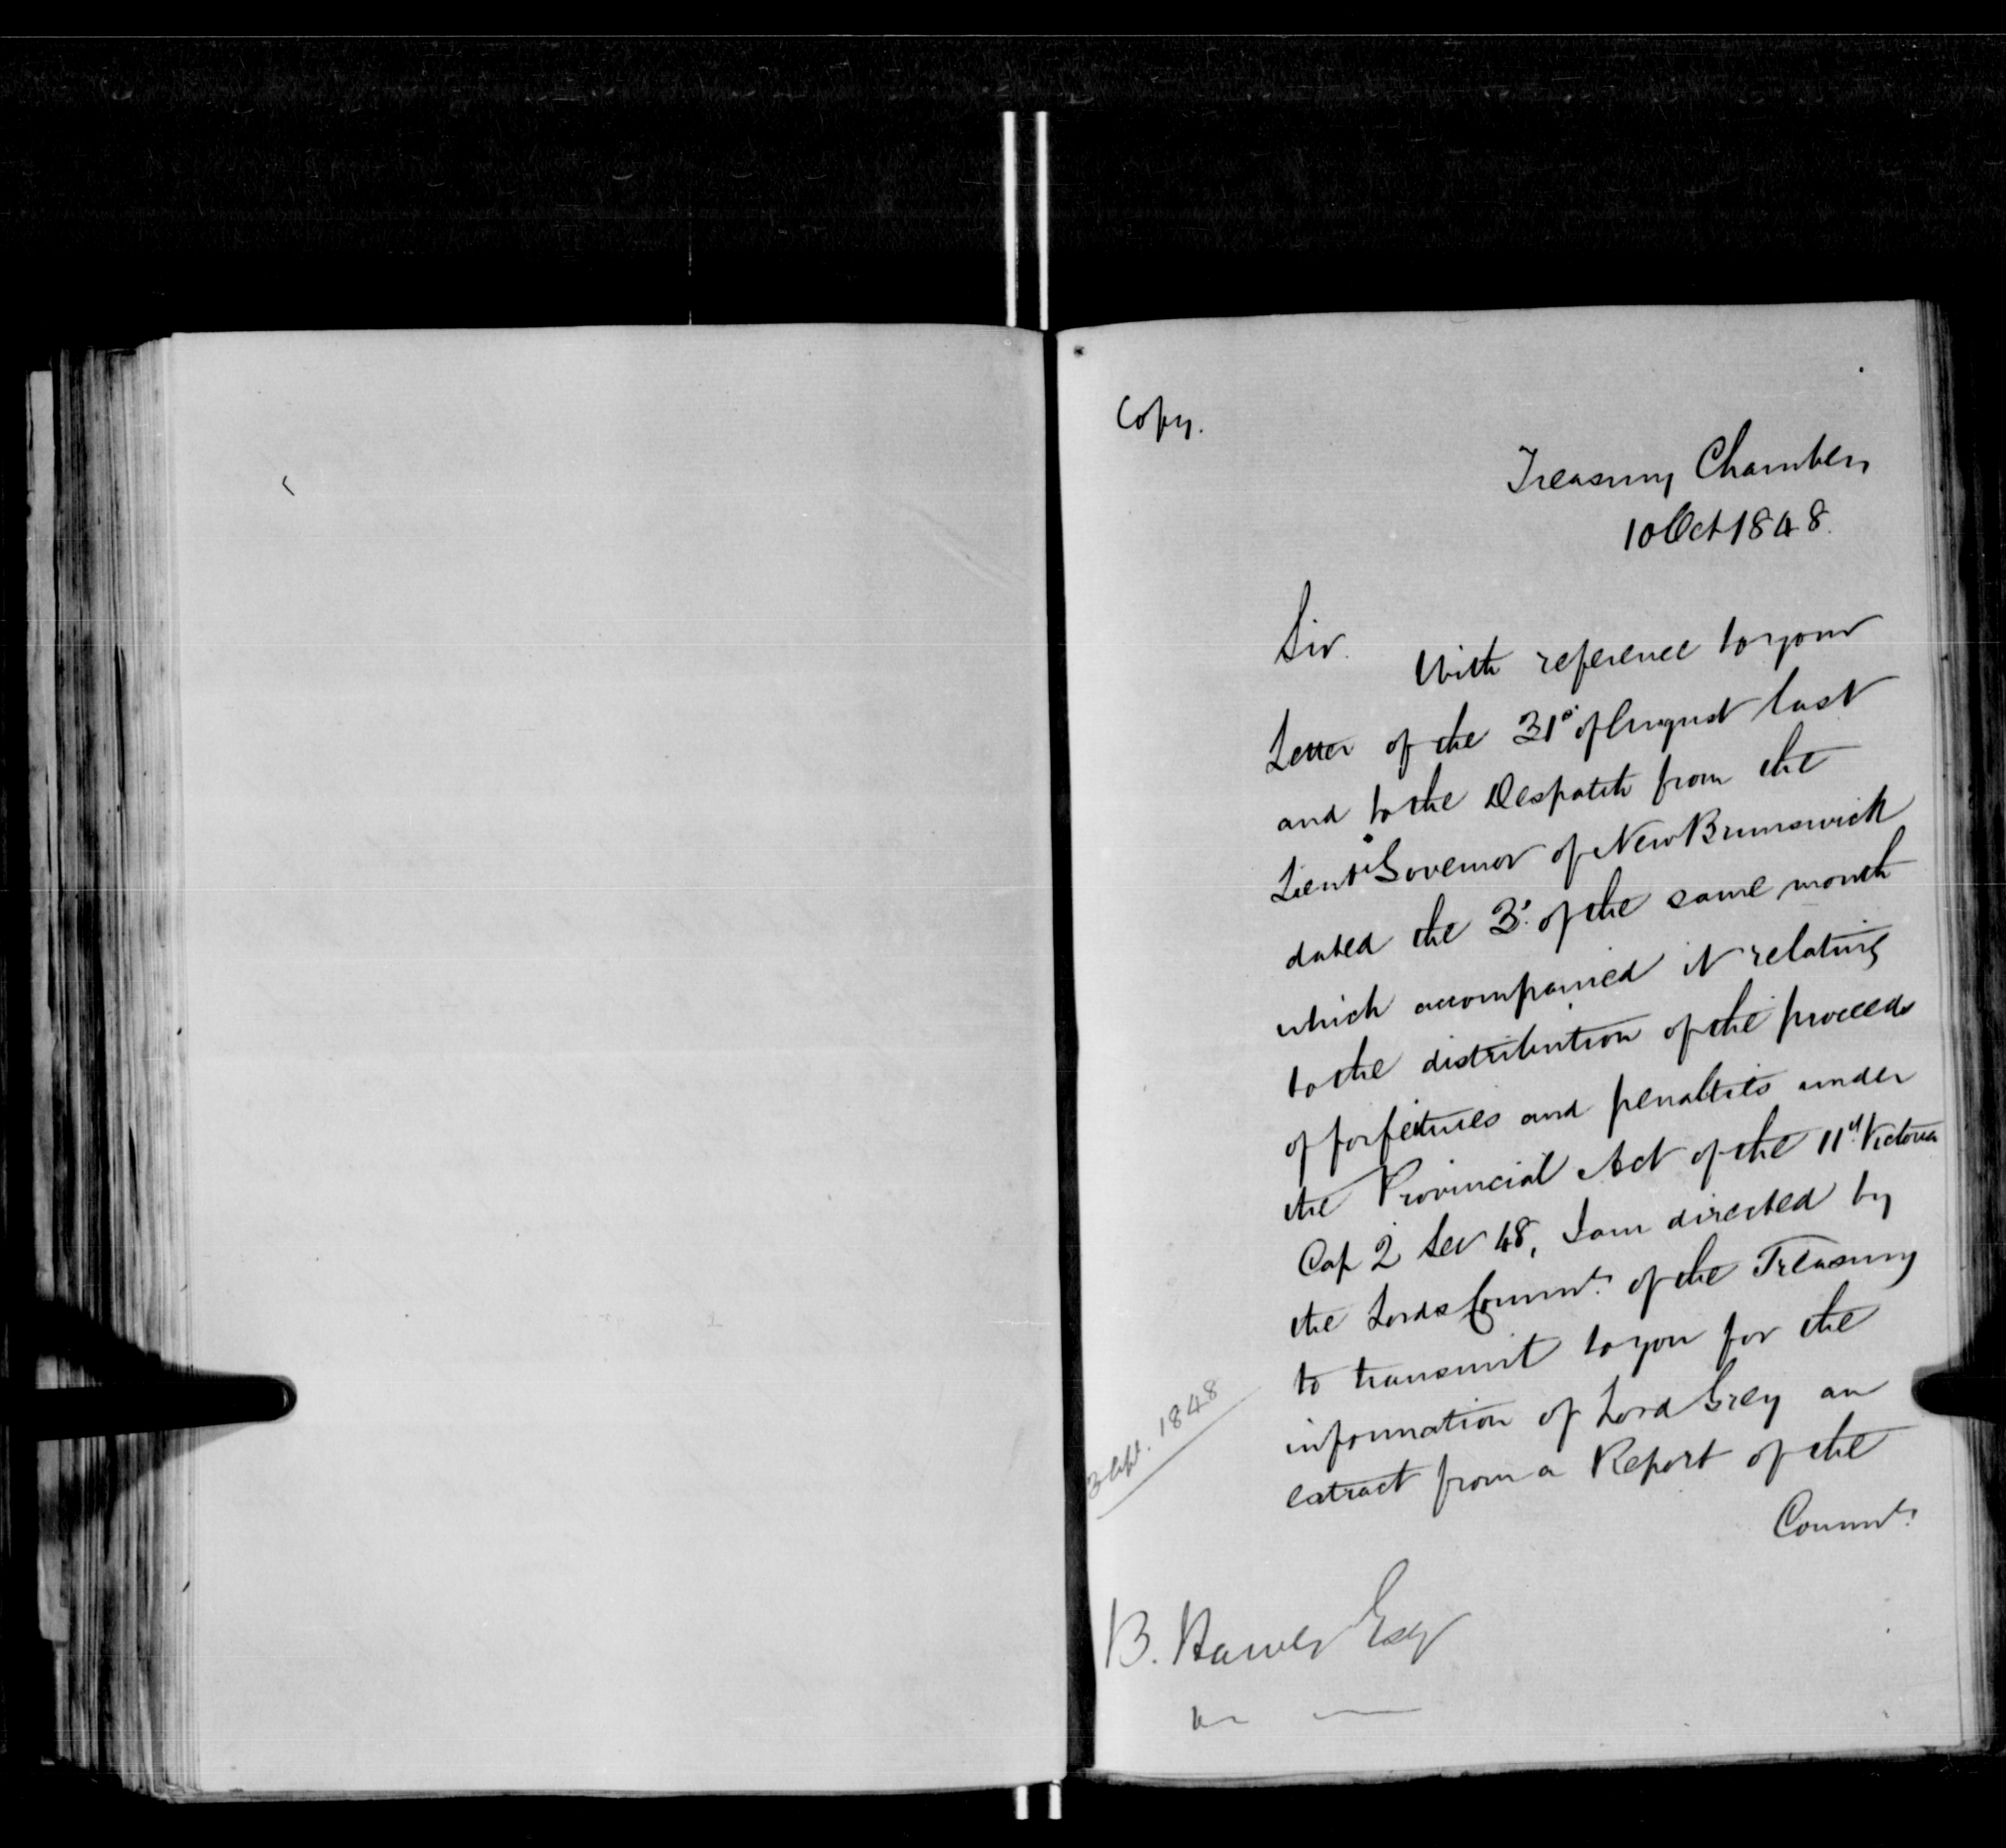 Copy.
Treasury Chambers
10 Oct 1848.
Sir.
With reference to your
Letter of the 31st of August last
and to the Despatch from the
Lieut. Governor of New Brunswick
dated the 3d. of the same month
which accompanied it relating
to the distribution of the proceeds
of forfeitures and penalties under
the Provincial Act of the 11th Victoria
Cap 2 Sec 48, I am directed by
the Lords Commrs. of the Treasury
to transmit to you for the
information of Lord Grey an
extract from a Report of the
Commrs.
1848
B. Hawes Esq